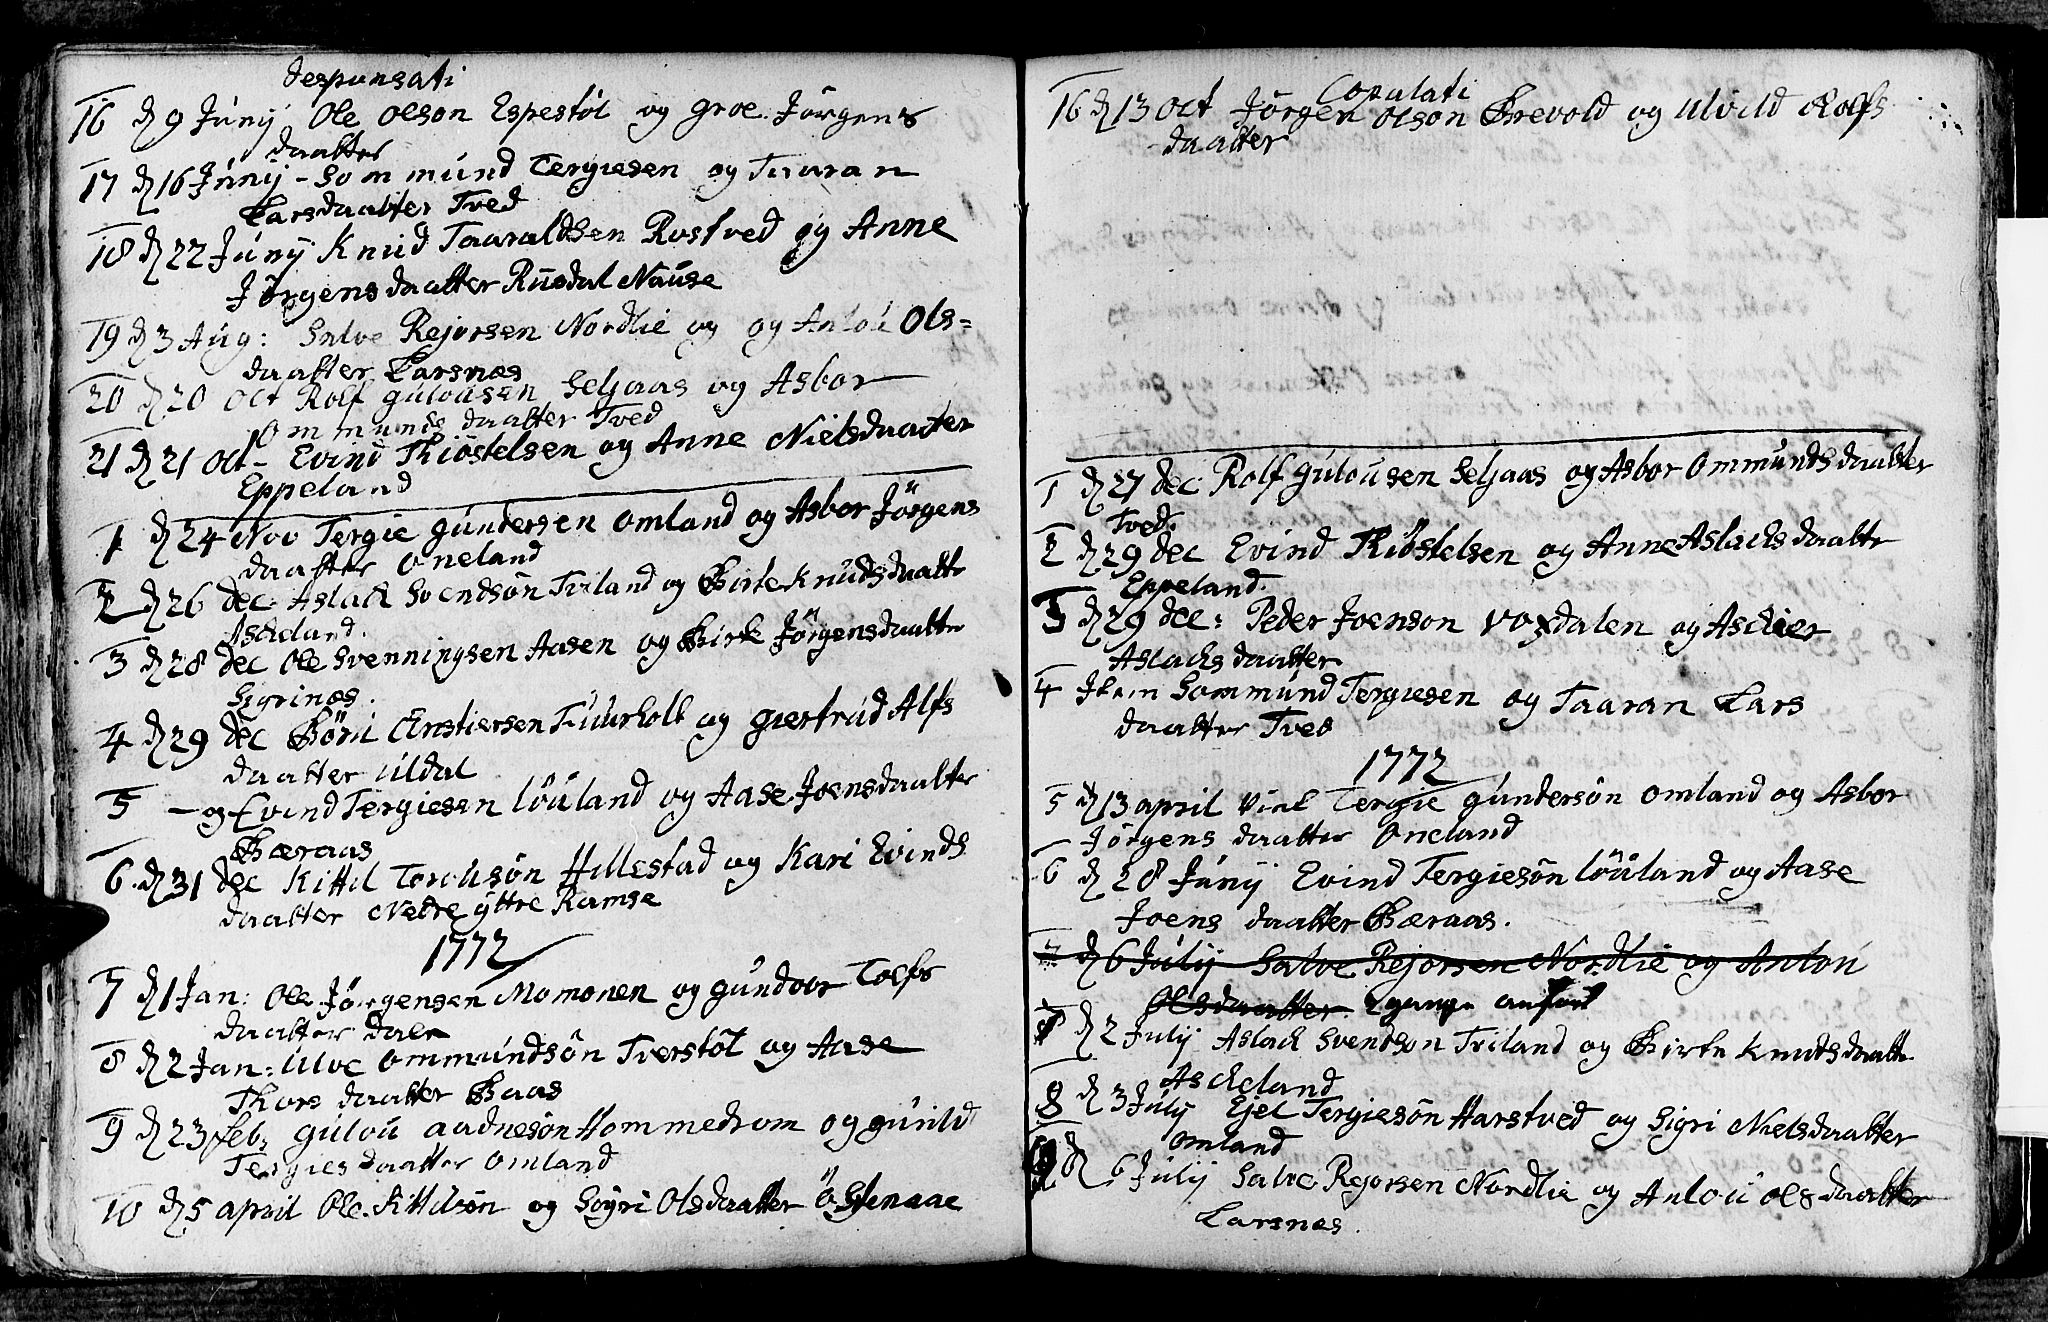 Desponsati
16 d 9 Junij Ole Olson Espestøl og groe Jørgens
daatter
17 d 16 Junij - Sommund Tergiesen og Taaran
Larsdaatter Tved
18 d 22 Junij Knud Taaraldsen Rostved og Anne
Jørgensdaatter Rusdal Nause
19 d 3 Aug: Salve Rejorsen Nordlie og og Anlou Ols=
daatter Larsnæs
20 d 20 Oct Rolf gulousen Seljaas og Asbor
Ommunds daatter Tved
21 d 21 Oct- Evind Thiøstelsen og Anne Nielsdaatter
Eppeland
1 d 24 Nov Tergie gundersen Omland og Asbor Jørgens
daatter Oneland
2 d 26 dec: Aslach Svendsøn Triland og Birte Knudsdaattr
Ascheland.
3 d 28 dec Ole Svenningsen Aasen og Birte Jørgensdaattr
Sigrinæs.
4 d 29 dec Børu Enstiersen Fuurholt og giertrud Alfs
daatter Uldal
5 - og Evind Tergiesen løuland og Aase Joensdaatter
Bæraas
6 d 31 dec Kittil Torousøn Hillestad og Kari Evinds
daatter Nedre yttre Ramse
1772
7 d 1 Jan: Ole Jørgensen Momonen og gundvor Toefs
daatter Dale
8 d 2 Jan: Ulve Ommundsøn Tverstøl og Aase
Thors daatter Baas
9 d 23 feb: gulou aadnesøn Hommedrom og gunild
Tergies daatter Omland
10 d 5 april Ole Kittilsøn og Sigri Olsdaatter Østenaae
Copulati
16 d 13 Oct Jørgen Olson Brevold og Ulvild Rolfs
daatter
1 d 27 dec: Rolf gulousen Seljaas og Asbor Ommundsdaatter
Tved.
2 d 29 dec Evind Thiøstelsen og Anne Aslachsdaattr
Eppeland.
3 d 29 dec: Peder Joenson Voxdalen og Aschier
Aslachsdaatter
4 Item Sommund Tergiesen og Taaran Lars
daatter Tved
1772
5 d 13 april viet Tergie gundersøn Omland og Asbor
Jørgens daatter Oneland
6 d 28 Junij Evind Tergiesøn løuland og Aase
Joens daatter Bæraas.
7 d 6 Julij Salve Rejorsen Nordlie og Anlou
Olsdaatter. 2 gange anført
7 d 2 Julij Aslach Svendson Triland og Birte Knudsdaattr
Ascheland
8 d 3 Julij Ejel Tergiesøn Harstved og Sigri Nielsdaatter
Omland
9 d 6 Julij Salve Rejorsen Nordlie og Anlou Olsdaatter
Larsnæs.